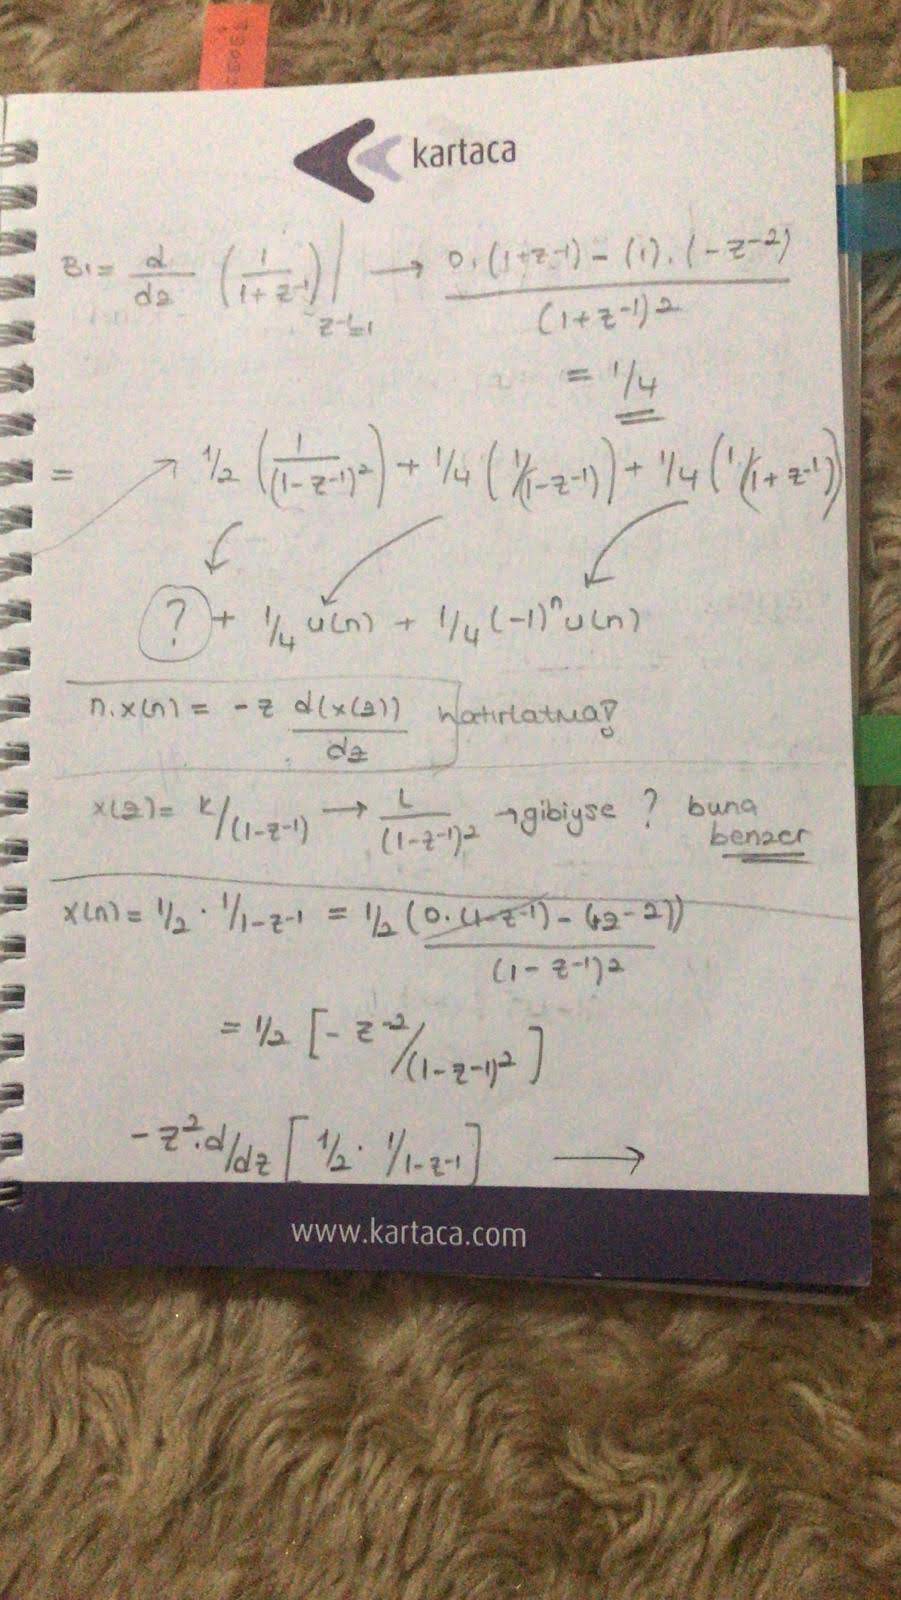 kartaca
B₁ = d/dz (1/(1+z⁻¹))|z⁻¹=1 → (0.(1+z⁻¹) - (1).(-z⁻²))/(1+z⁻¹)²
= 1/4
= 1/2 (1/(1-z⁻¹)²) + 1/4 (1/(1-z⁻¹)) + 1/4 (1/(1+z⁻¹))
? + 1/4 u(n) + 1/4 (-1)ⁿ u(n)
n.x(n) = -z d(x(z))/dz hatırlatma!
x(z) = k/(1-z⁻¹) → L/(1-z⁻¹)² → gibiyse ? buna
benzer
x(n) = 1/2 . 1/1-z⁻¹ = 1/2 (0.(1-z⁻¹) - (+z⁻²))/(1-z⁻¹)²
= 1/2 [-z⁻²/(1-z⁻¹)²]
-z².d/dz [1/2 . 1/1-z⁻¹] →
www.kartaca.com